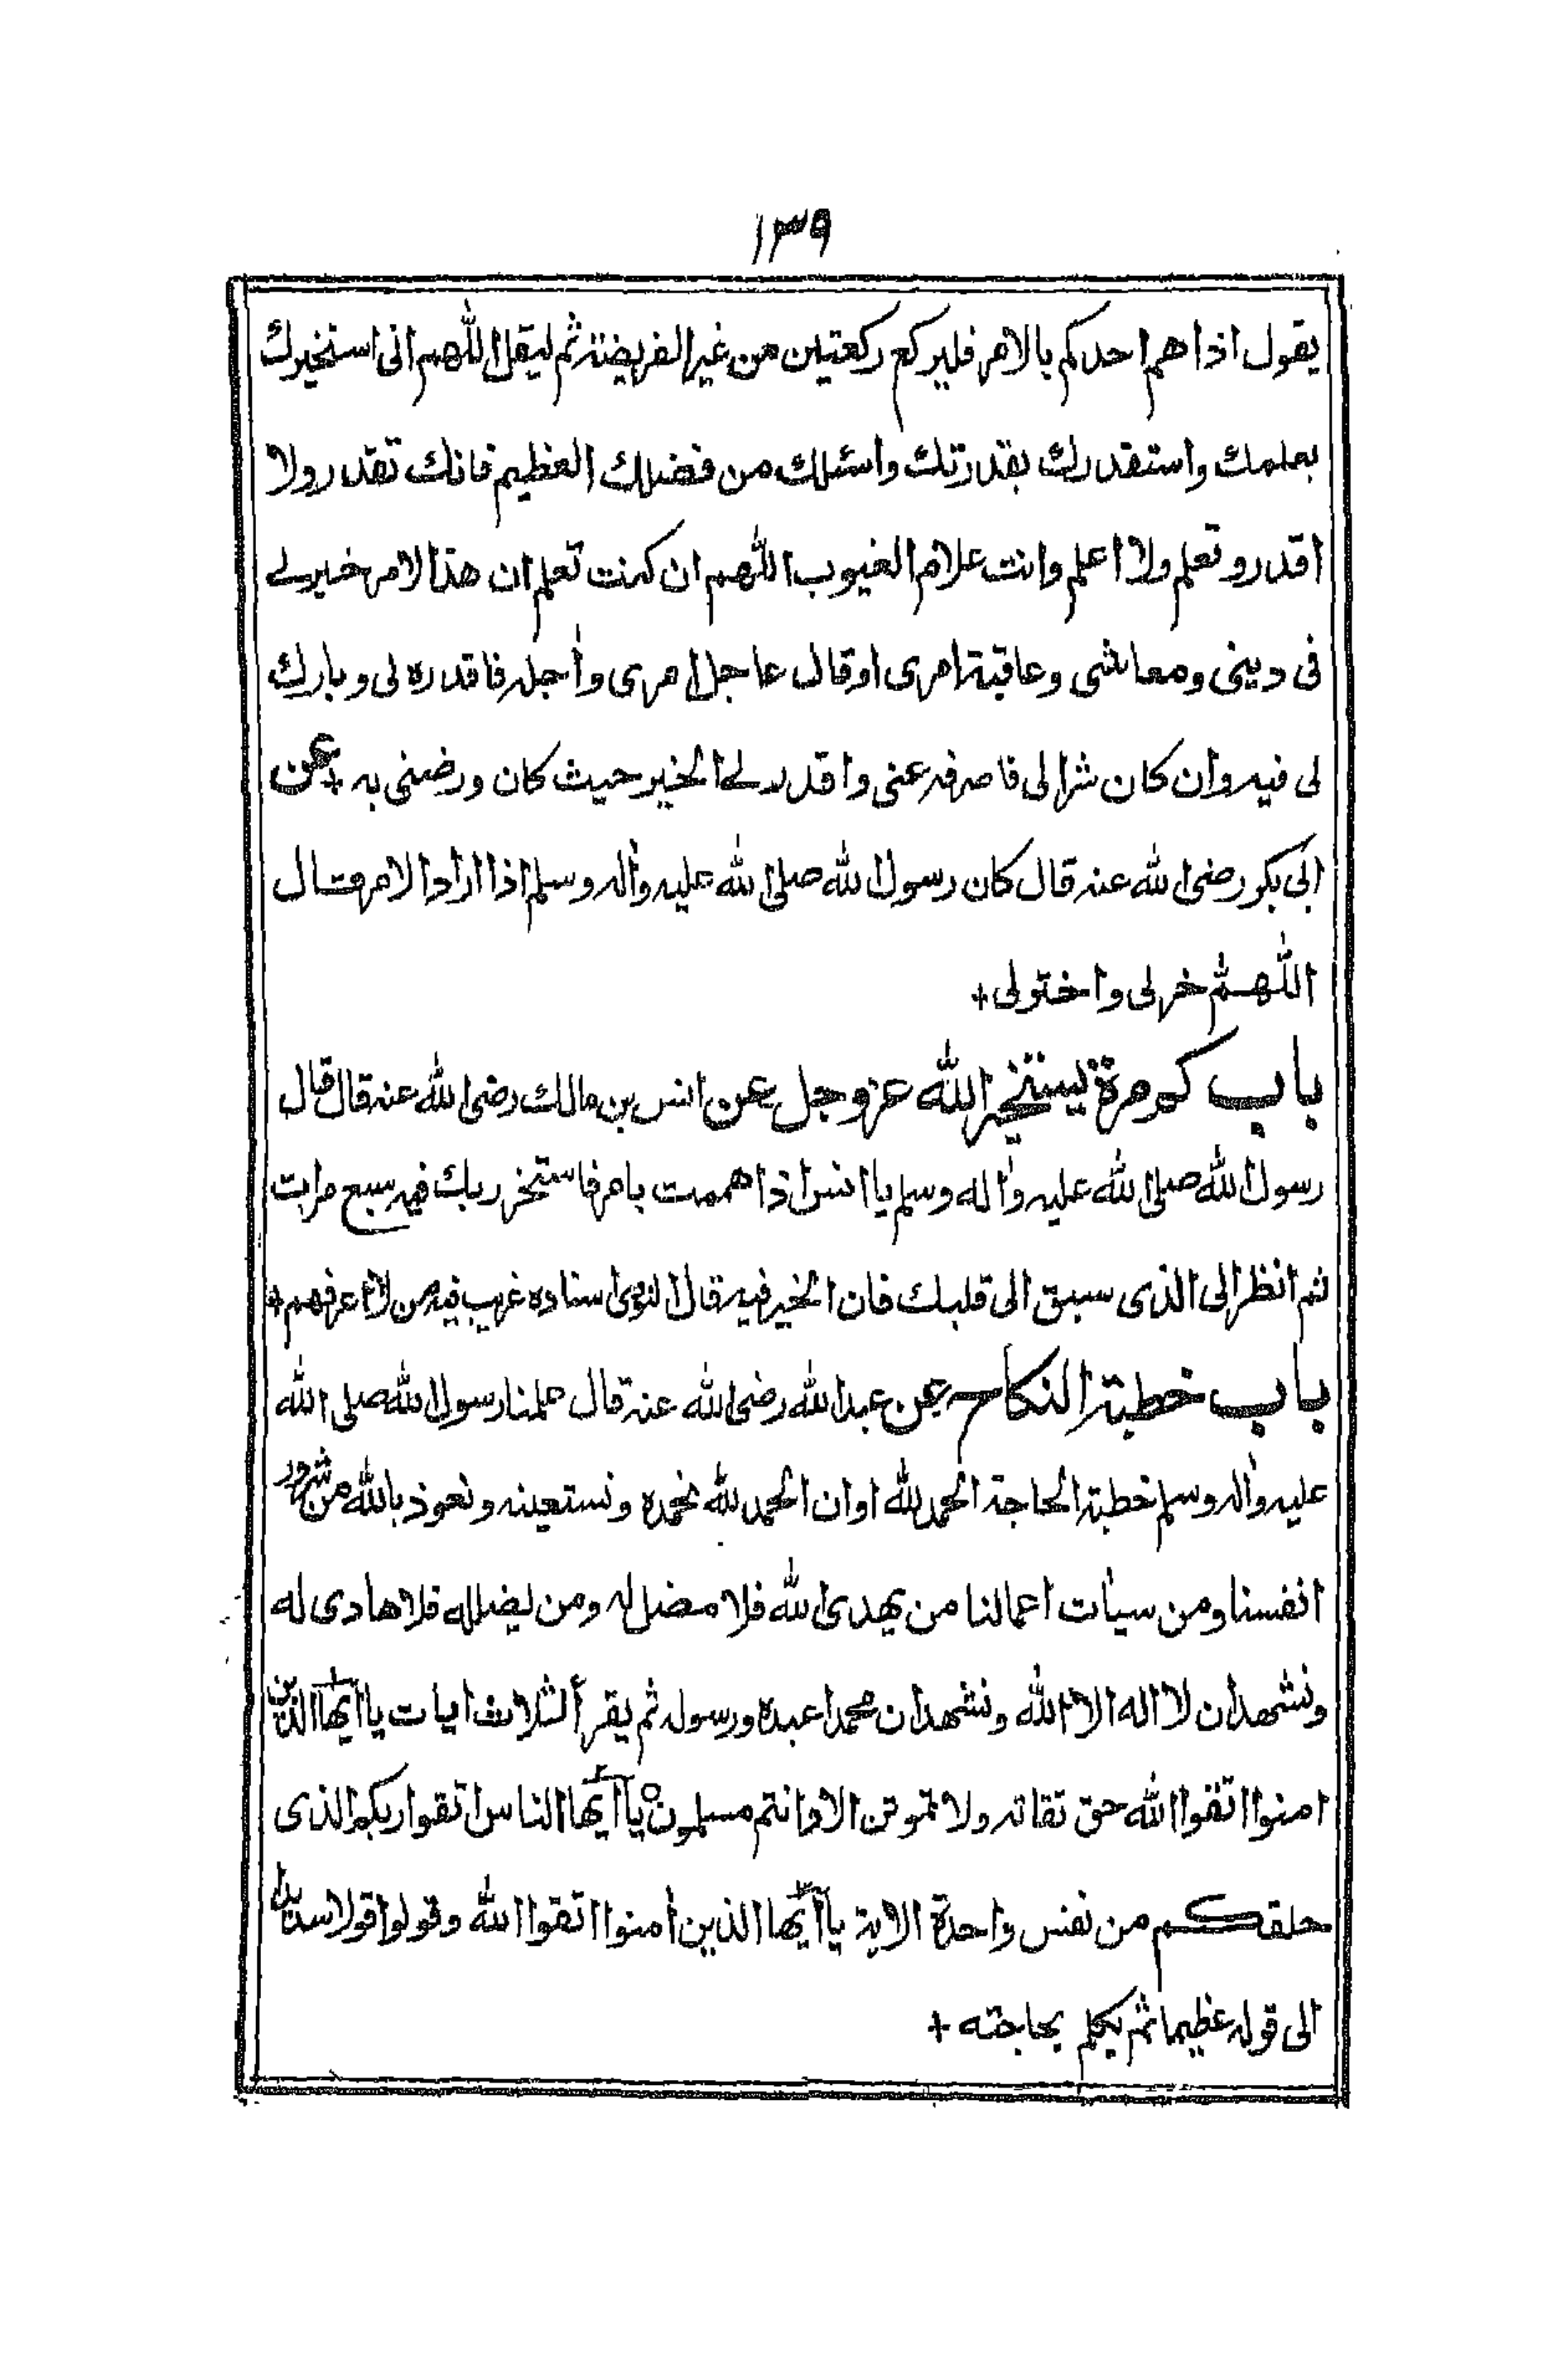 ١٣٩
يقول اذا هم احدكم بالامر فليركع ركعتين من غير الفريضة ثم ليقل اللهم انى استخيرك
بعلمك واستقدرك بقدرتك واسئلك من فضلك العظيم فانك تقدر ولا
اقدر وتعلم ولا اعلم وانت علام الغيوب اللهم ان كنت تعلم ان هذا الامر خير لے
فى دينى ومعاشى وعاقبة امرى او قال عاجل امرى وأجله فاقدره لى وبارك
لى فيه وان كان شرا لى فاصرفه عنى واقدر لے الخير حيث كان ورضنى به + عن
ابى بكر رضى الله عنه قال كان رسول الله صلى الله عليه وأله وسلم اذا اراد الامر قال
اللهم خر لى واختر لى +
باب كم مرة يستخير الله عز وجل عن انس بن مالك رضى الله عنه قال قال
رسول الله صلى الله عليه وأله وسلم يا انس اذا هممت بامر فاستخر ربك فيه سبع مرات
ثم انظر الى الذى سبق الى قلبك فان الخير فيه قال النووى اسناده غريب فيه من لا اعرفهم +
باب خطبة النكاح عن عبد الله رضى الله عنه قال علمنا رسول الله صلى الله
عليه وأله وسلم خطبة الحاجة الحمد لله او ان الحمد لله نحمده ونستعينه ونعوذ بالله من شرور
انفسنا ومن سيأت اعمالنا من يهدى الله فلا مضل له ومن يضلله فلا هادى له
ونشهد ان لا اله الا الله ونشهد ان محمدا عبده ورسوله ثم يقرأ الثلاث ايات يا ايها الذين
امنوا اتقوا الله حق تقاته ولا تموتن الا وانتم مسلمون يا أيها الناس اتقوا ربكم الذى
خلقكم من نفس واحدة الاية يا أيها الذين أمنوا اتقوا الله وقولوا قولا سديدا
الى قوله عظيما ثم يتكلم بحاجته +